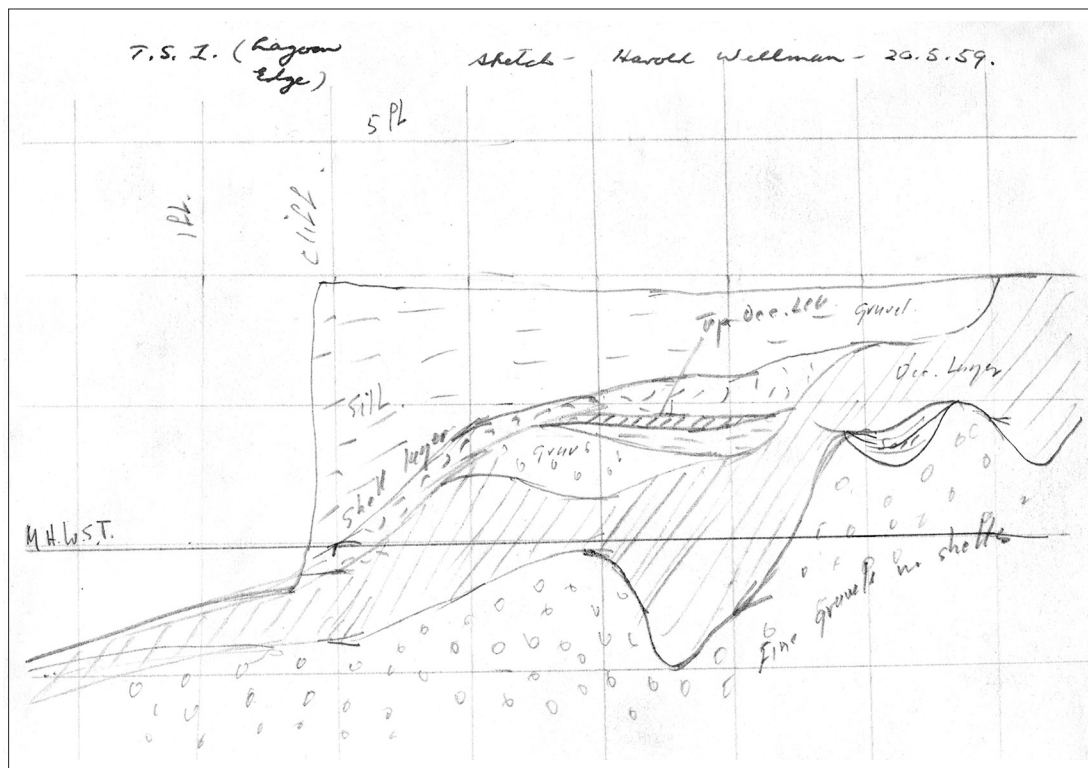 T.S. I. (Lagoon
Edge)
Sketch - Harold Wellman - 20.5.59.
5 ft
1ft.
Cliff.
Top Occ. Lev
Gravel.
Occ. Layer
Silt.
Shell layer
Gravs
M.H.W.S.T.
Fine gravels no shells